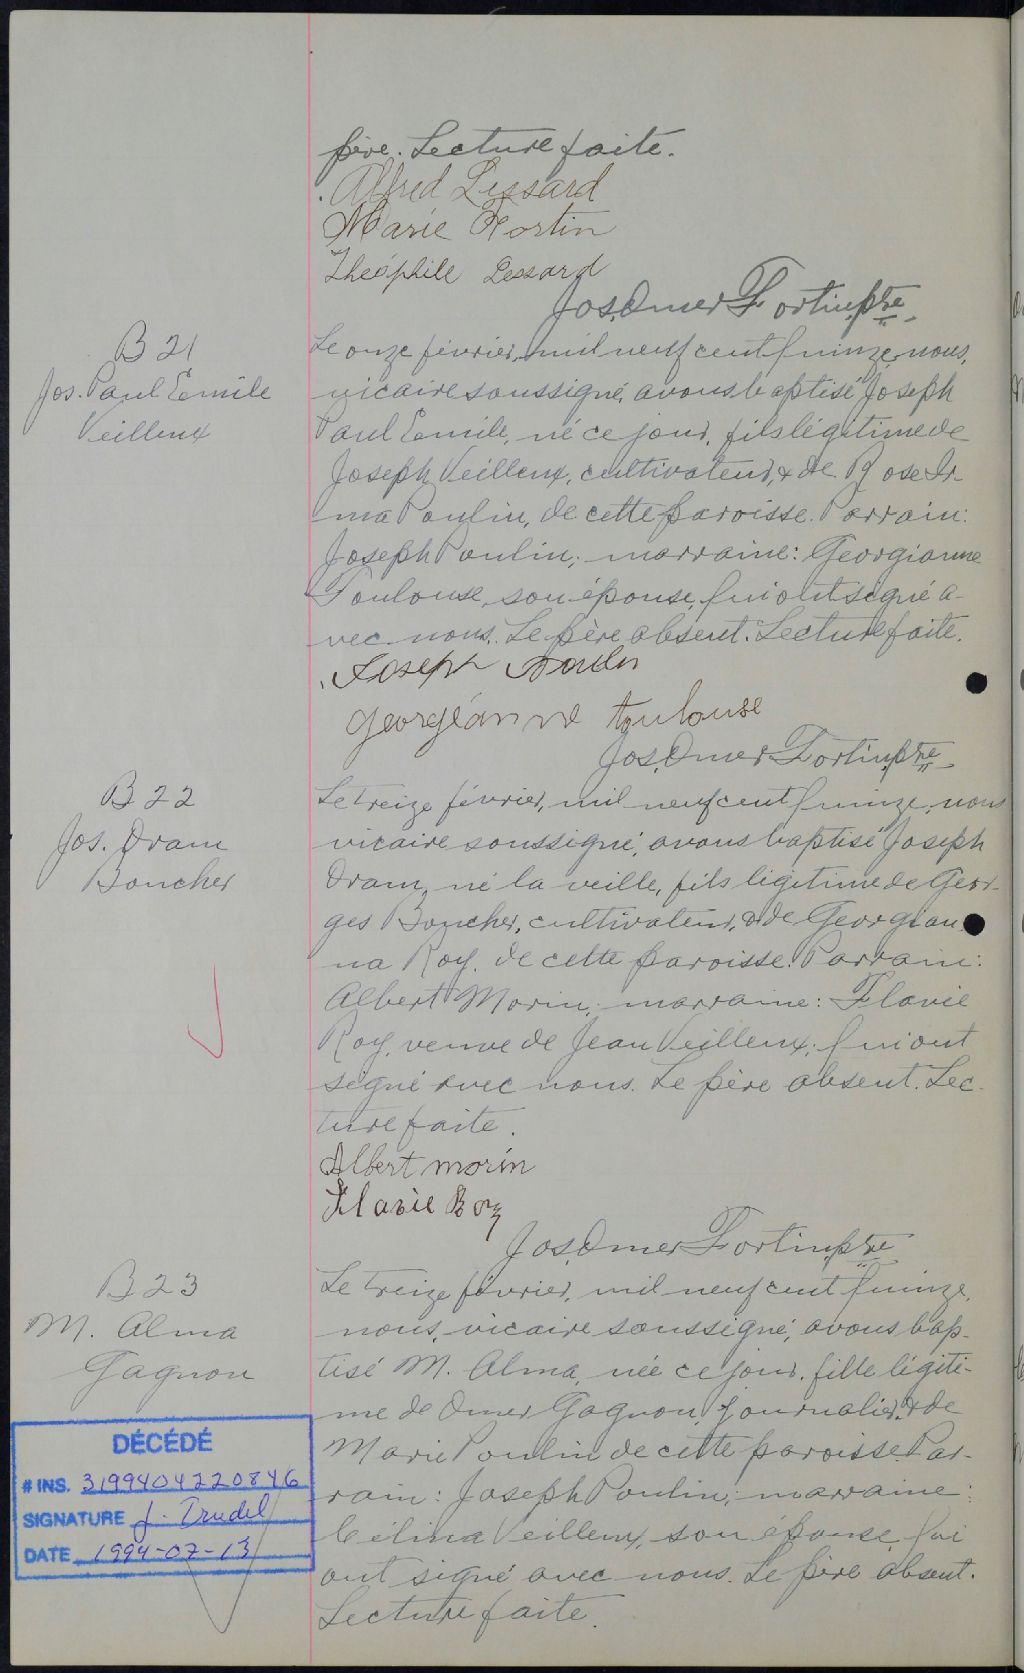 père. Lecture faite.
Alfred Lessard
Marie Fortin
Théophile Lessard
Jos. Omer Fortin, ptre
B 21
Jos. Paul Emile
Veilleux
Le onze février, mil neuf cent quinze, nous,
vicaire soussigné, avons baptisé Joseph
Paul Emile, né ce jour, fils légitime de
Joseph Veilleux, cultivateur, & de Rose Ir-
ma Poulin, de cette paroisse. Parrain:
Joseph Poulin; marraine: Georgianne
Toulouse, son épouse, qui ont signé a-
vec nous. Le père absent. Lecture faite.
Joseph Poulin
Georgéanne Toulouse
Jos. Omer Fortin, ptre
B 22
Jos. Oram
Boucher
Le treize février, mil neuf cent quinze, nous
vicaire soussigné, avons baptisé Joseph
Oram, né la veille, fils légitime de Geor-
ges Boucher, cultivateur, & de Georgian
na Roy, de cette paroisse. Parrain:
Albert Morin; marraine: Flavie
Roy, veuve de Jean Veilleux; qui ont
signé avec nous. Le père absent. Lec-
ture faite.
Albert morin
Flavie Roy
Jos. Omer Fortin, ptre
B 23
M. Alma
Gagnon
Le treize février, mil neuf cent quinze,
nous, vicaire soussigné, avons bap-
tisé M. Alma, née ce jour, fille légiti-
me de Omer Gagnon, journalier, & de
Marie Poulin de cette paroisse. Par-
rain: Joseph Poulin; marraine:
Célina Veilleux, son épouse, qui
ont signé avec nous. Le père absent.
Lecture faite.
DÉCÉDÉ
# INS. 3199404220846
SIGNATURE J. Trudel
DATE 1994-07-13